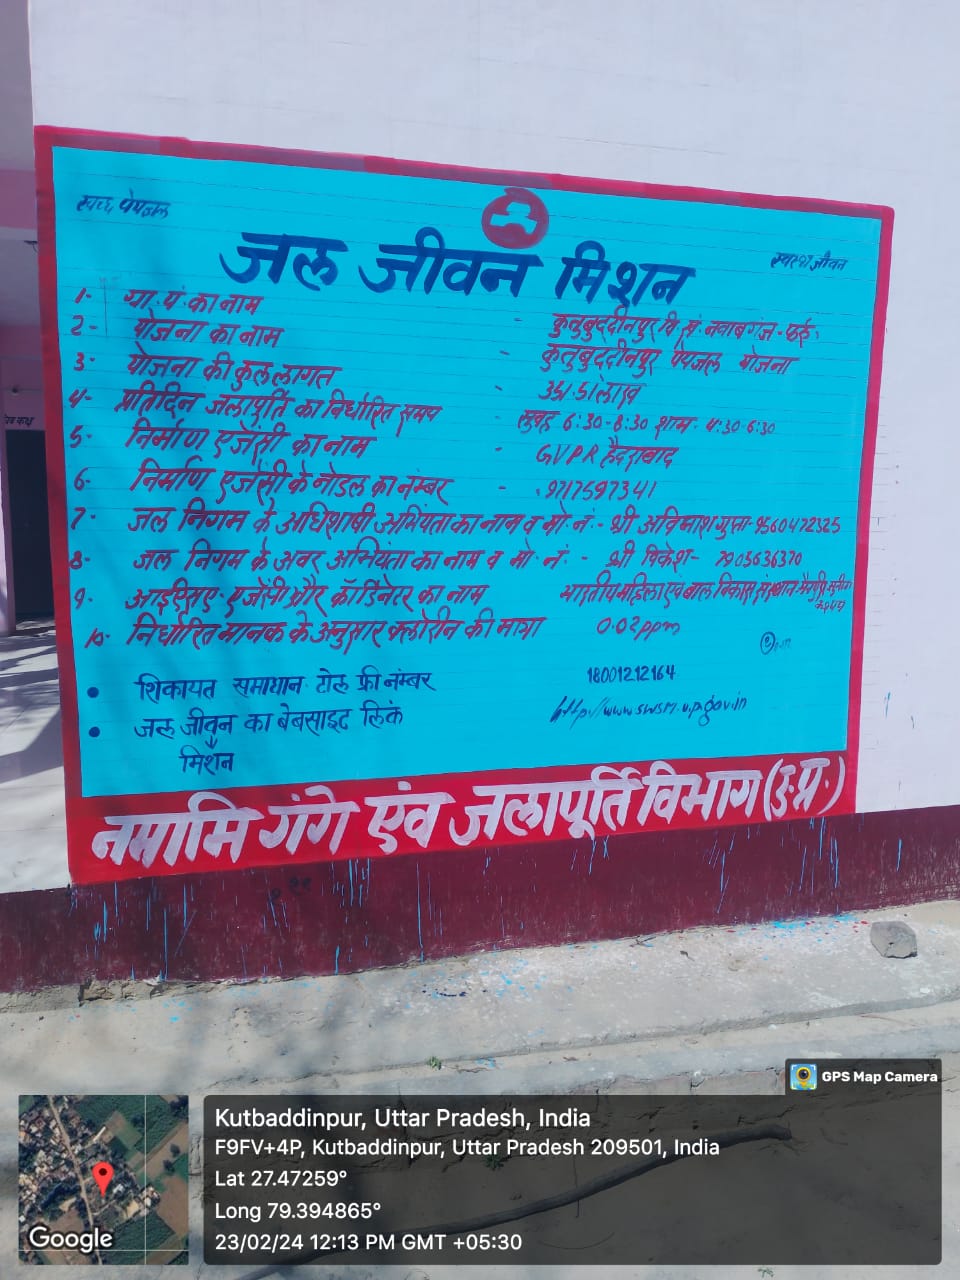 स्वच्छ पेयजल
स्वस्थ जीवन
जल जीवन मिशन
1- ग्रा. पं. का नाम - कुतुबुददीनपुर वि. खं. नवाबगंज - फर्रु.
2- योजना का नाम - कुतुबुददीनपुर पेयजल योजना
3- योजना की कुल लागत - 351.51 लाख
4- प्रतिदिन जलापूर्ति का निर्धारित समय - सुबह 6:30-8:30 शाम- 4:30-6:30
5- निर्माण एजेंसी का नाम - GVPR हैदराबाद
6- निर्माण एजेंसी के नोडल का नंम्बर - 9717597341
7- जल निगम के अधिशाषी अभियंता का नाम व मो. नं. - श्री अविनाश गुप्ता- 9560472525
8- जल निगम के अवर अभियंता का नाम व मो. नं - श्री विकेश- 7905636370
9- आईएसए. एजेंसी और कॉर्डिनेटर का नाम भारतीय महिला एवं बाल विकास संस्थान मैनपुरी
10- निर्धारित मानक के अनुसार क्लोरीन की मात्रा 0.02ppm
• शिकायत समाधान टोल फ्री नंम्बर 18001212164
• जल जीवन का बेबसाइट लिंक http://www.swsm.up.gov.in
मिशन
नमामि गंगे एंव जलापूर्ति विभाग (उ.प्र.)
GPS Map Camera
Kutbaddinpur, Uttar Pradesh, India
F9FV+4P, Kutbaddinpur, Uttar Pradesh 209501, India
Lat 27.47259°
Long 79.394865°
23/02/24 12:13 PM GMT +05:30
Google